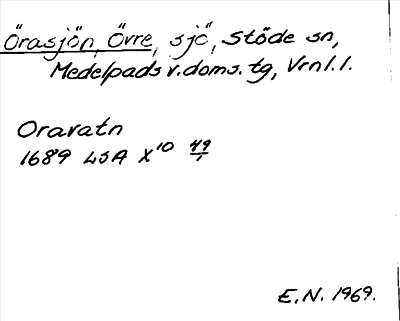 Örasjön, Övre, sjö, Stöde sn,
Medelpads v. doms. tg, Vrnl. l.
Oravatn
1689 LSA X¹⁰ 49/1
E.N. 1969.